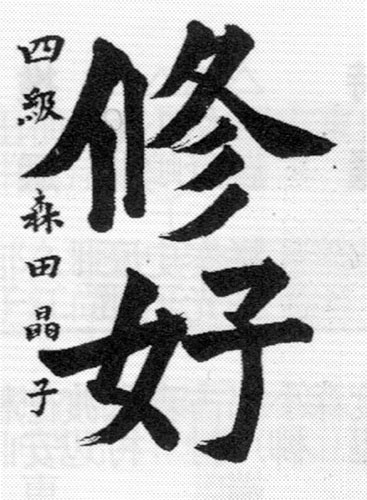 修好
四級 森田晶子